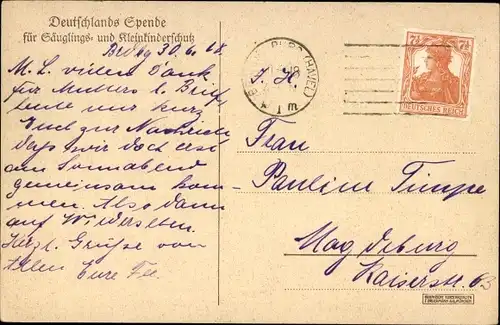 Deutschlands Spende
für Säuglings- und Kleinkinderschutz
Brdbg 30.6.18.
M. L. vielen Dank
für Mutters l. Brief
heute nur kurz
Euch zur Nachricht
dass wir doch erst
am Sonnabend
gemeinsam kom-
men. Also dann
auf Wiedersehen
Herzl. Grüsse von
Allen Eure
BURG (HAVEL)
7½ 7½
DEUTSCHES REICH
Frau
Pauline Timpe
Magdeburg
Kaiserstr. 63